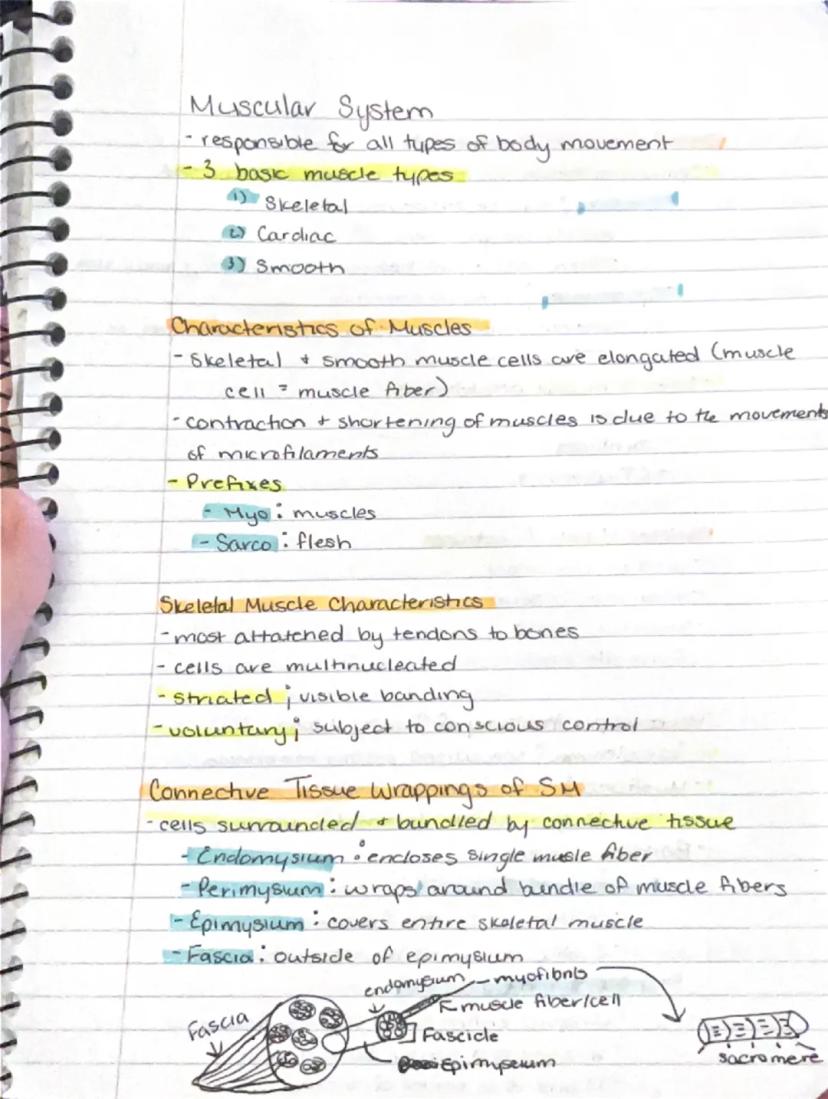 Muscular System
- responsible for all types of body movement
- 3 basic muscle types
1) Skeletal
2) Cardiac
3) Smooth
Characteristics of Muscles
- Skeletal + smooth muscle cells are elongated (muscle
cell = muscle fiber)
- contraction + shortening of muscles is due to the movements
of microfilaments
- Prefixes
- Myo: muscles
- Sarco: flesh
Skeletal Muscle Characteristics
- most attatched by tendons to bones
- cells are multinucleated
- striated; visible banding
- voluntary; subject to conscious control
Connective Tissue Wrappings of SM
- cells surrounded + bundled by connective tissue
- Endomysium: encloses single musle fiber
- Perimysium: wraps around bundle of muscle fibers
- Epimysium: covers entire skeletal muscle
- Fascia: outside of epimysium
endomysium
myofibrils
muscle fiber/cell
Fascia
Fascicle
Epimyseium
sacromere